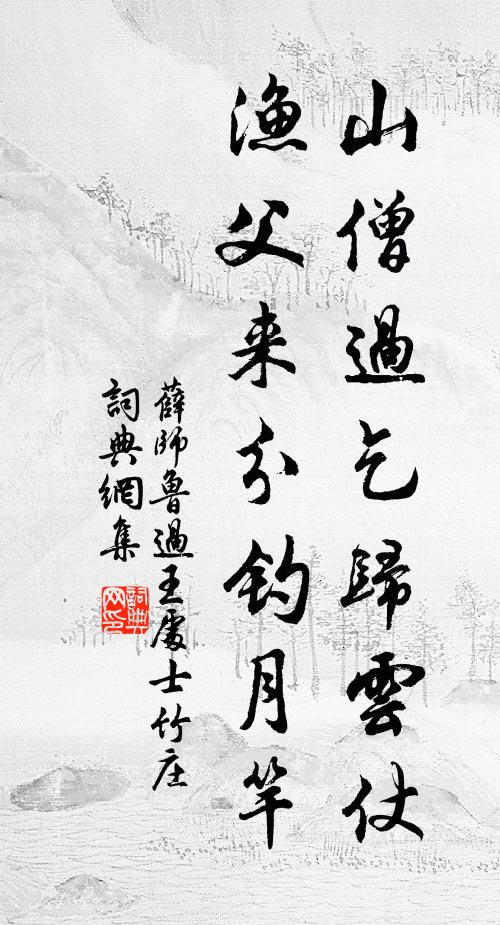 山僧過乞歸雲仗
漁父来分釣月竿
薛師魯過王處士竹庄
詞典網集
詞典网印